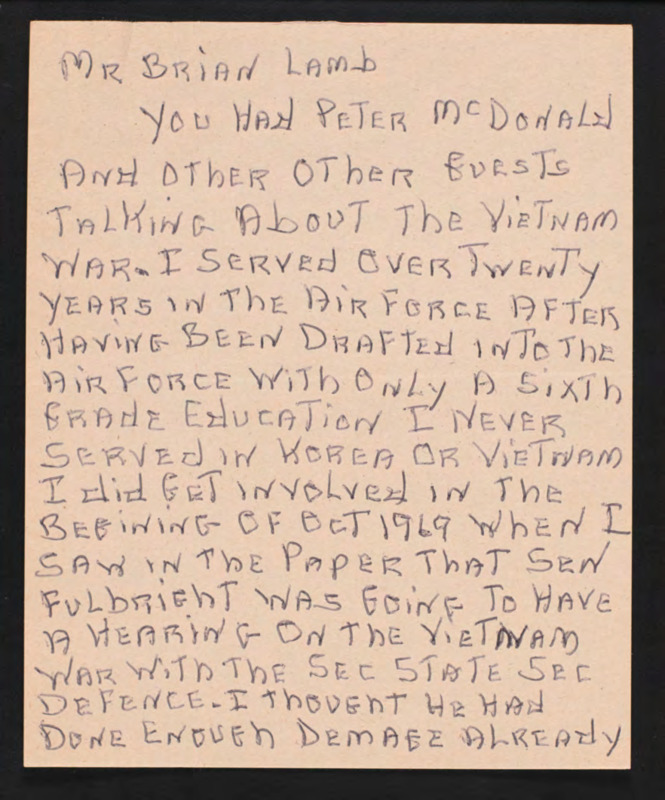 Mr Brian Lamb
You Had Peter McDonald
And other other Guests
Talking About the Vietnam
War. I Served over Twenty
Years in the Air Force After
Having Been Drafted into the
Air Force with only a Sixth
Grade Education I Never
Served in Korea or Vietnam
I did Get involved in the
Begining of Oct 1969 when I
Saw in the Paper that Sen
Fulbright was Going to Have
A Hearing on the Vietnam
War with the Sec State Sec
Defence. I thought He Had
Done Enough Demage Already